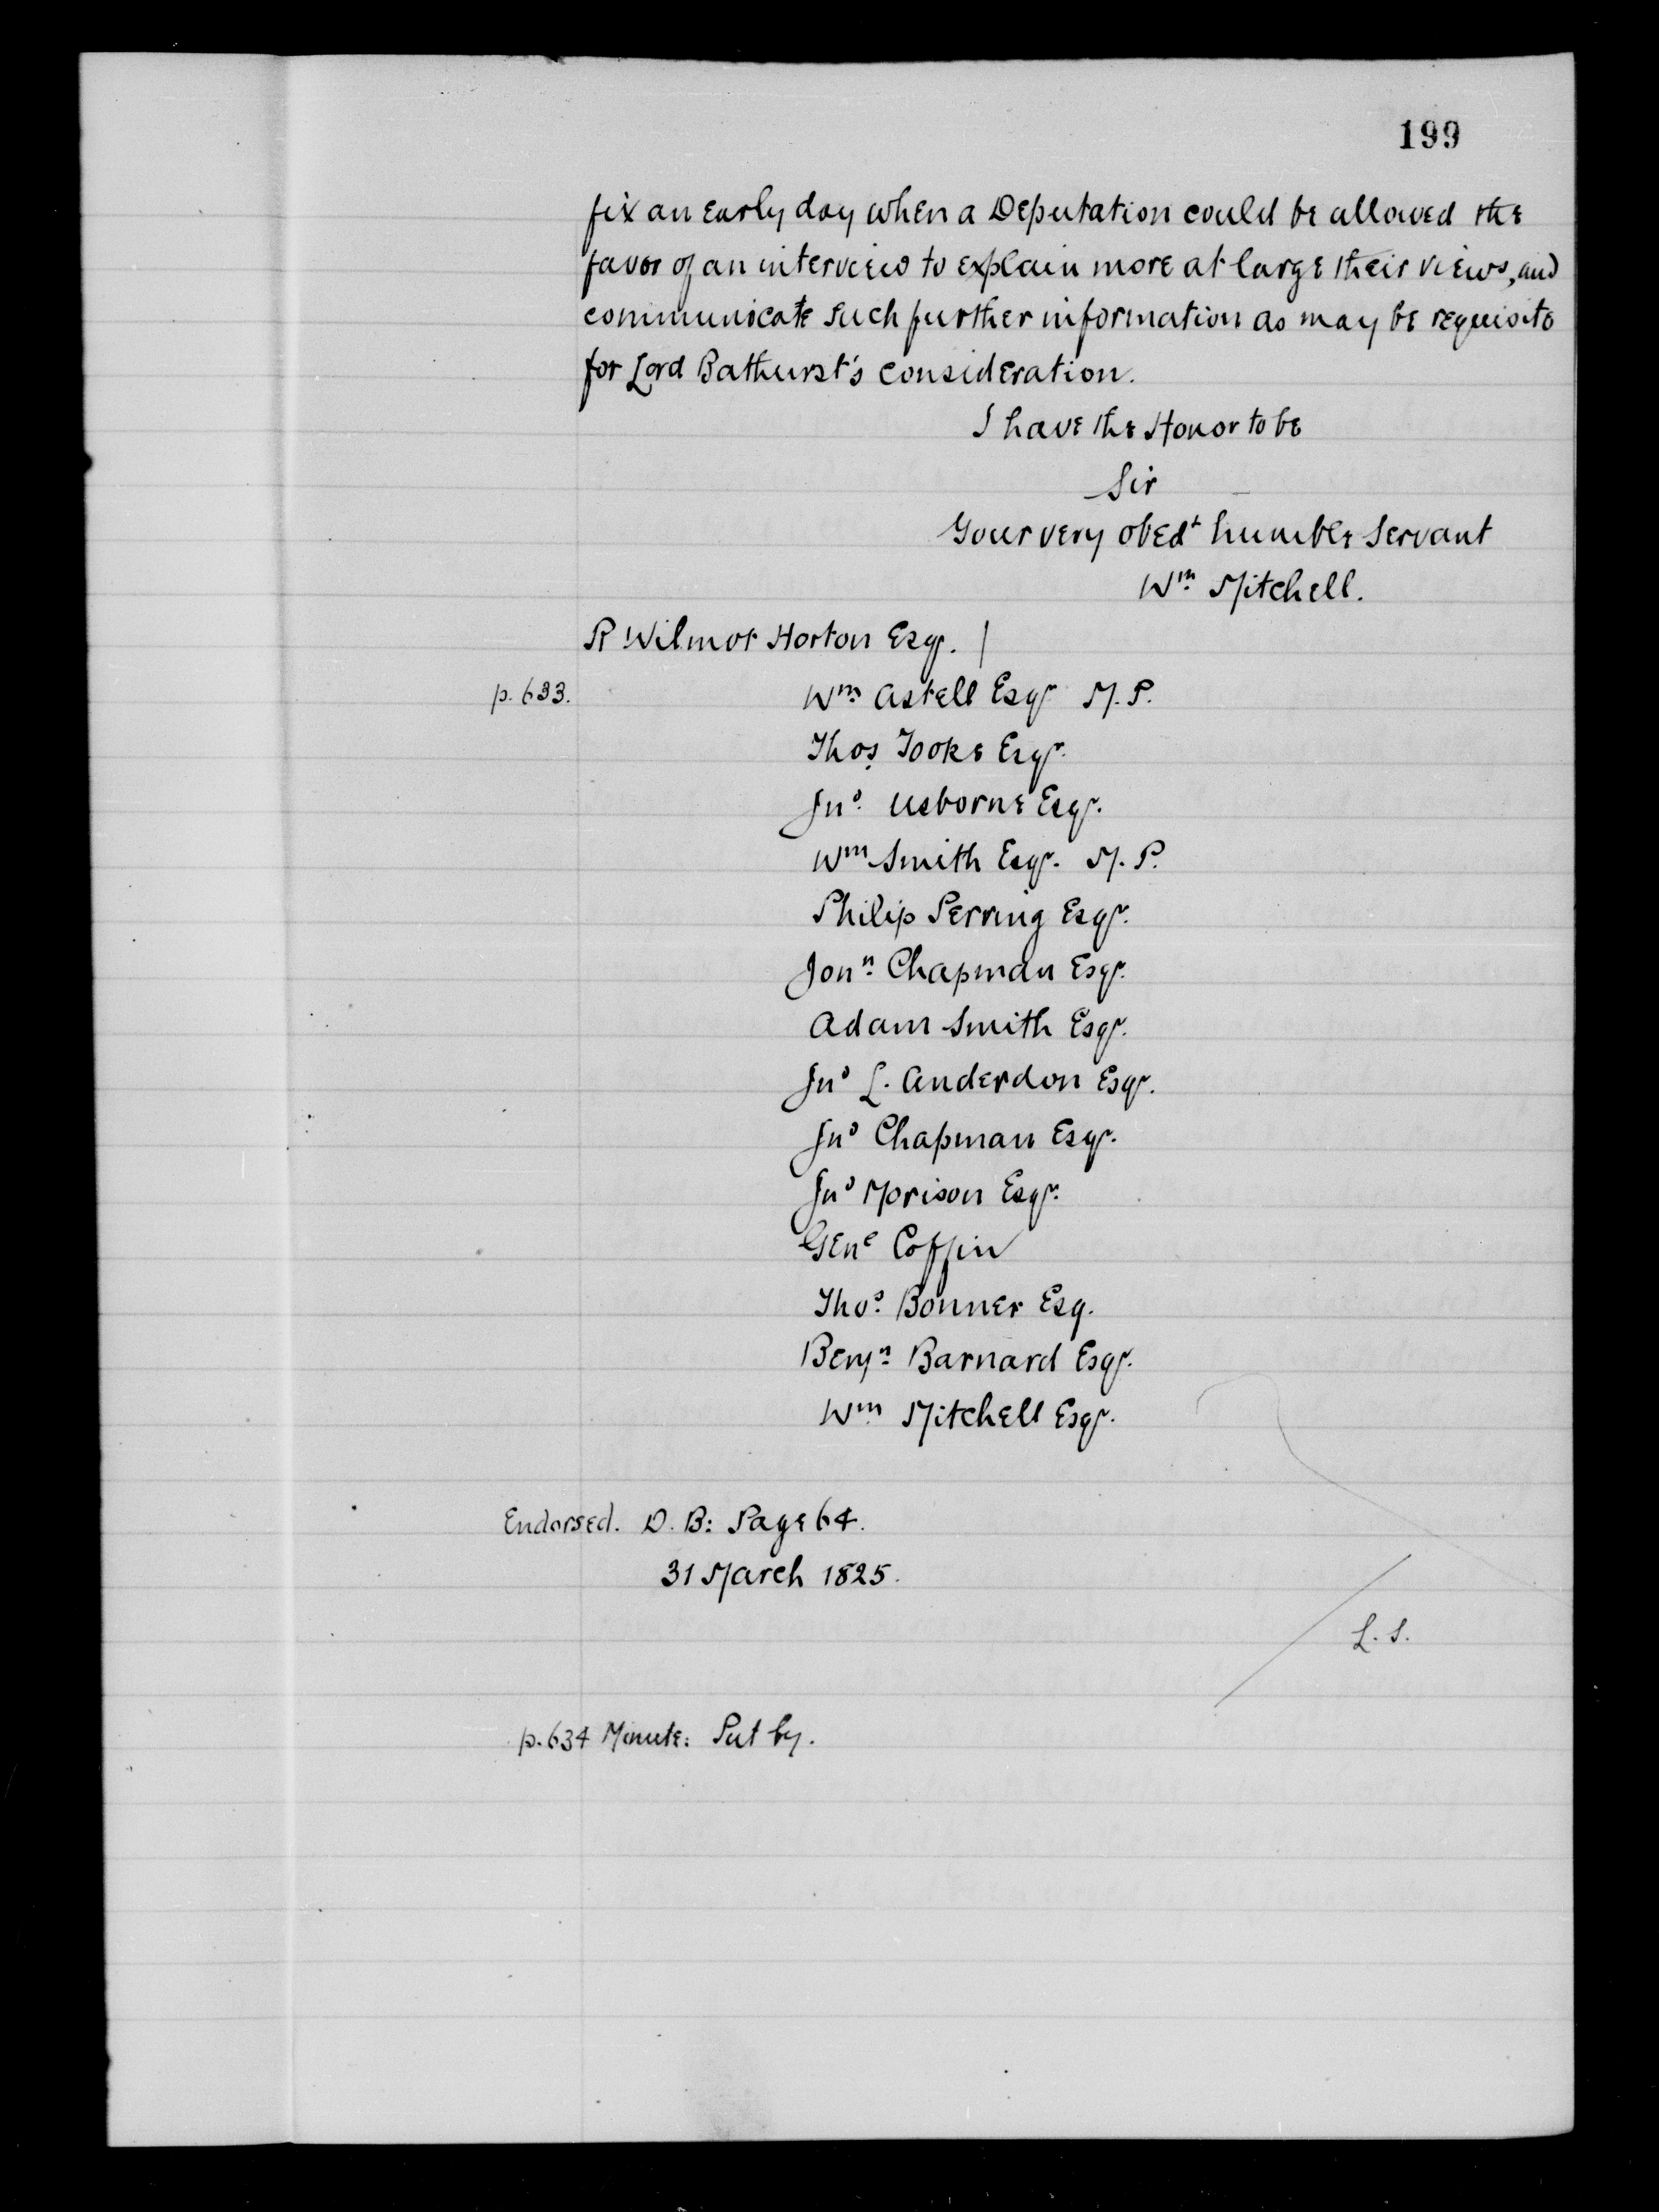 199
fix an early day when a Deputation could be allowed the
favor of an interview to explain more at large their views, and
communicate such further information as may be requisite
for Lord Bathurst's consideration.
I have the Honor to be
Sir
Your very obedt humble Servant
Wm Mitchell.
R Wilmot Horton Esqr.
p. 633. Wm Astell Esqr M.P.
Thos Tooke Esqr.
Jno. Usborne Esqr.
Wm Smith Esqr. M.P.
Philip Perring Esqr.
Jonn. Chapman Esqr.
Adam Smith Esqr.
Jno L. Anderdon Esqr.
Jno Chapman Esqr.
Jno Morison Esqr.
Genl Coffin
Thos. Bonner Esq.
Benjn. Barnard Esqr.
Wm Mitchell Esqr.
Endorsed. D. B: Page 64.
31 March 1825.
L. S.
p. 634 Minute: Put by.